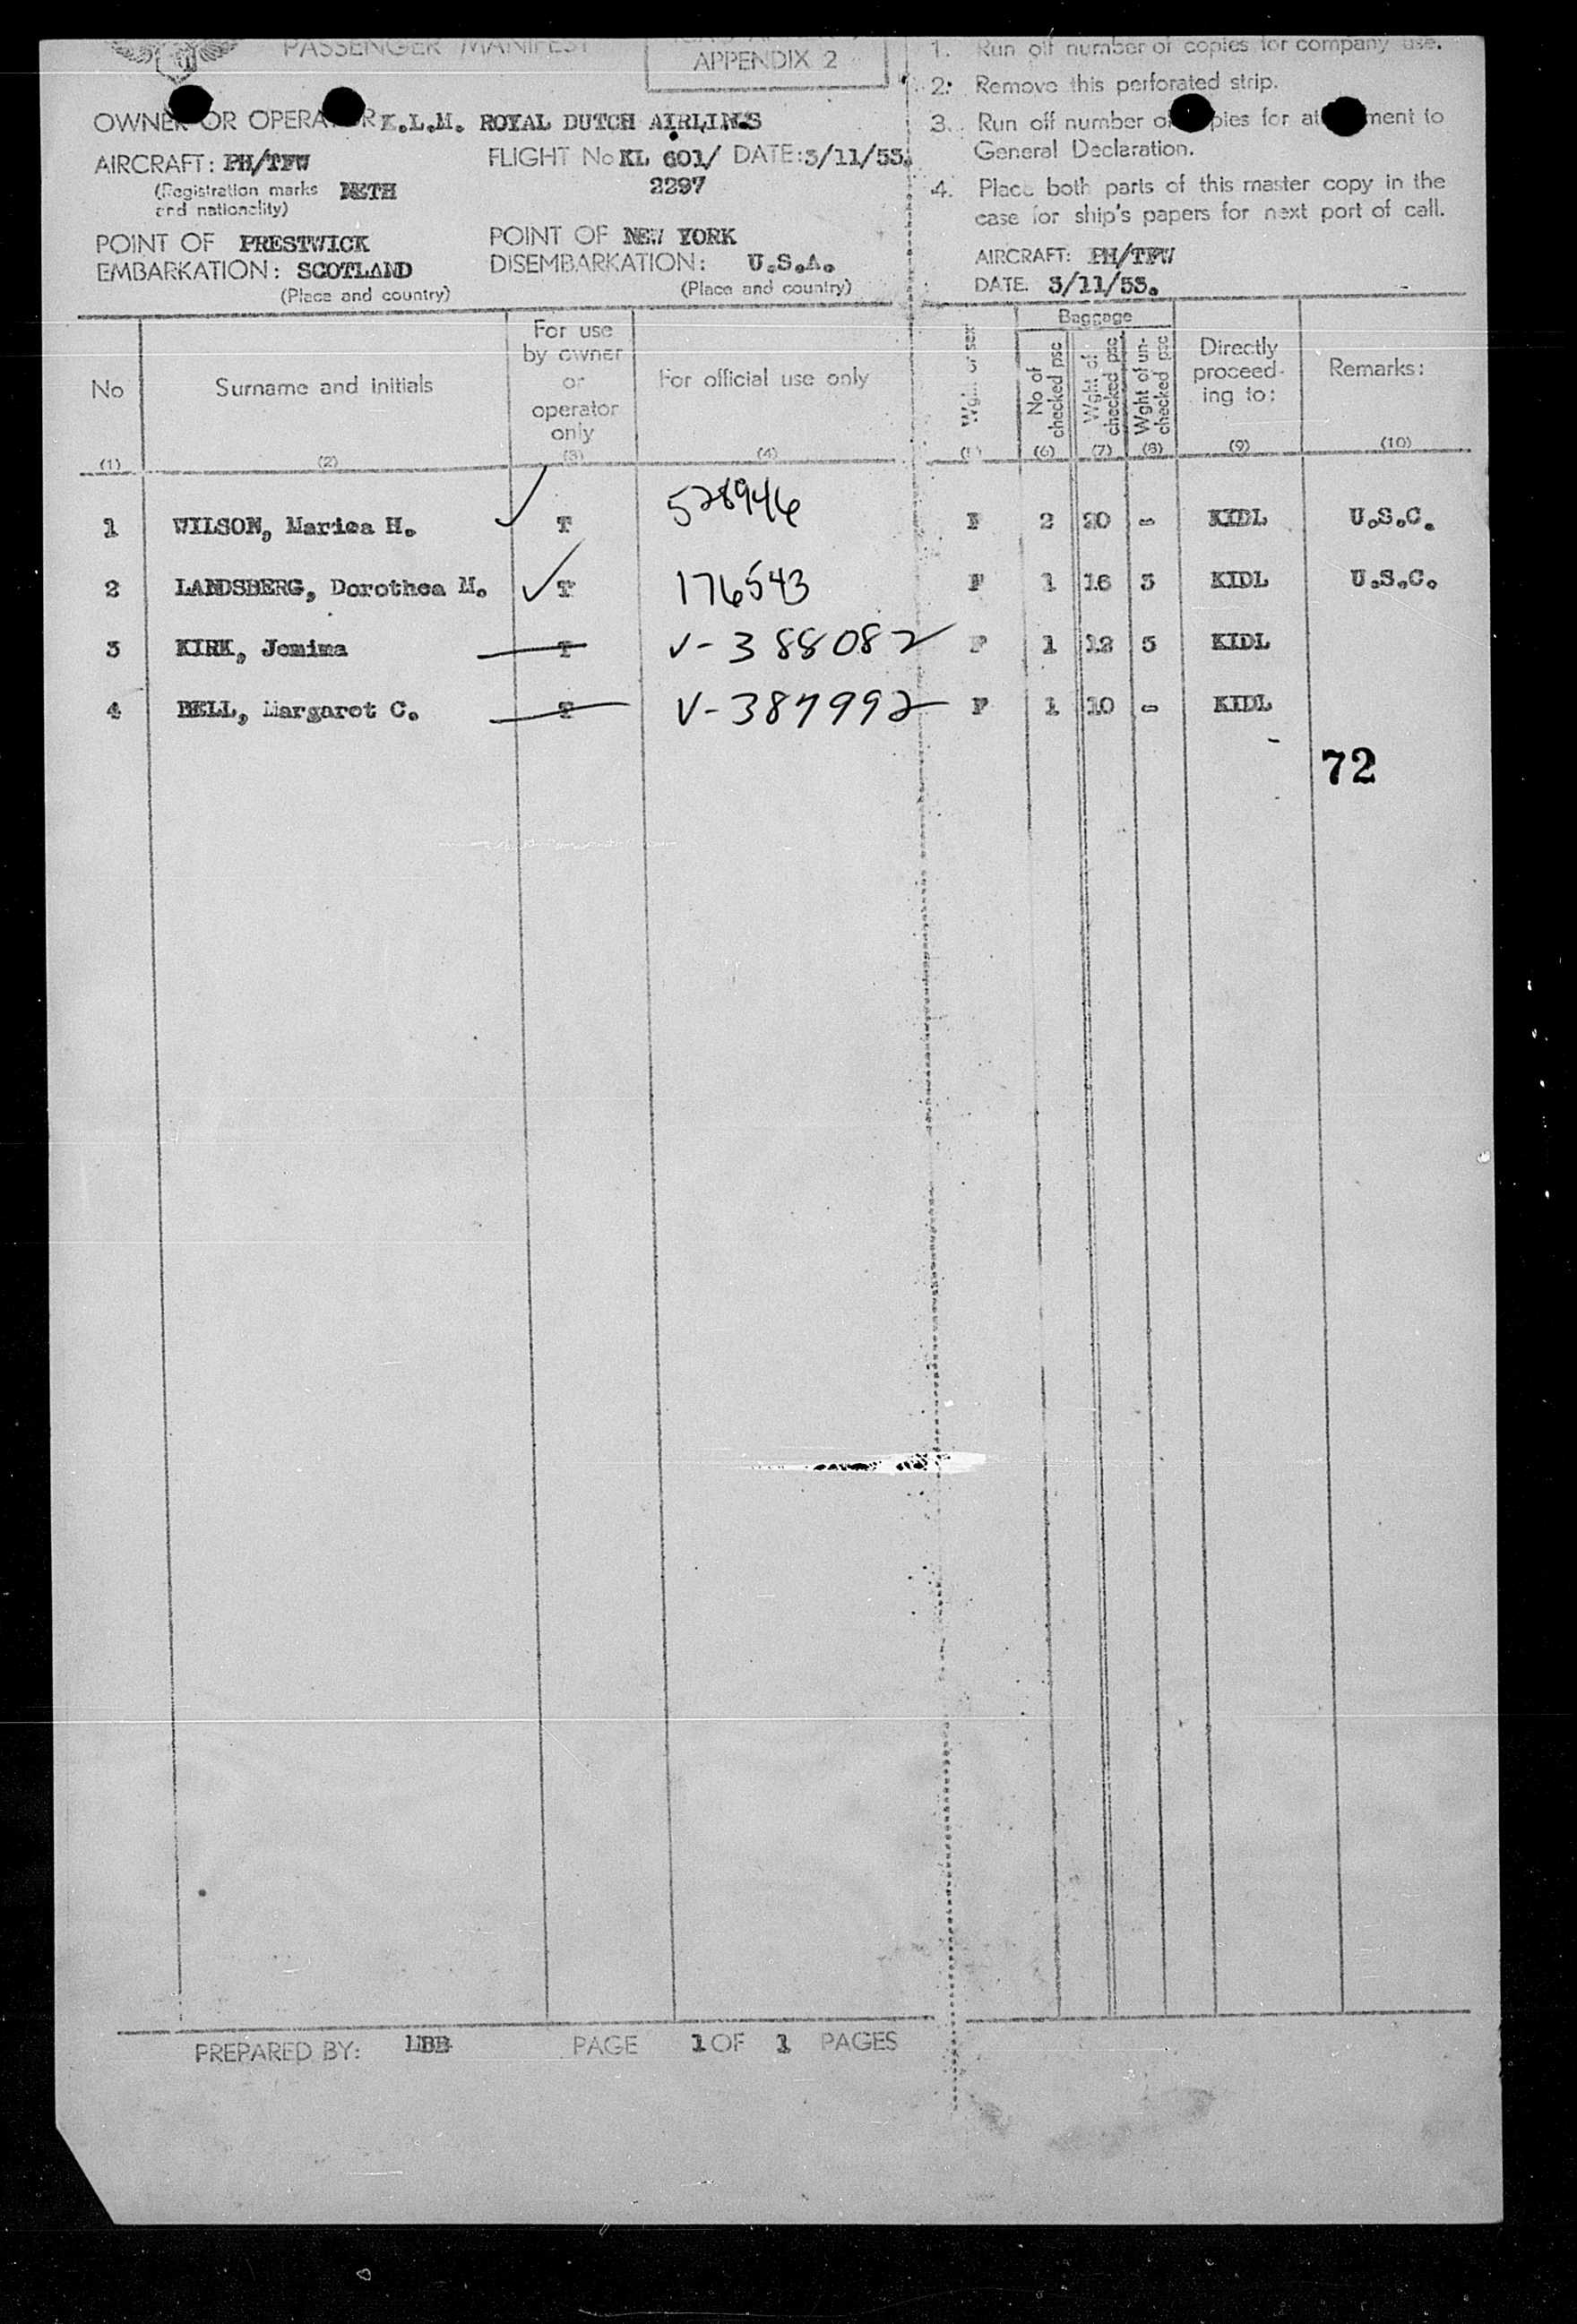 PASSENGER MANIFEST
APPENDIX 2
OWNER OR OPERATOR K.L.M. ROYAL DUTCH AIRLINES
AIRCRAFT: PH/TFW FLIGHT No KL 601/ DATE: 3/11/53.
(Registration marks NETH 2297
and nationality)
POINT OF PRESTWICK POINT OF NEW YORK
EMBARKATION: SCOTLAND DISEMBARKATION: U.S.A.
(Place and country) (Place and country)
1. Run off number of copies for company use.
2. Remove this perforated strip.
3. Run off number of copies for attachment to
General Declaration.
4. Place both parts of this master copy in the
case for ship's papers for next port of call.
AIRCRAFT: PH/TFW
DATE. 3/11/53.
No Surname and initials For use by owner or operator only For official use only Wght or sex Baggage No of checked psc Wght of checked psc Wght of un-checked psc Directly proceed-ing to: Remarks:
(1) (2) (3) (4) (6) (7) (8) (9) (10)
1 WILSON, Marica H. T 528946 F 2 20 - KIDL U.S.C.
2 LANDSBERG, Dorothea M. T 176543 F 1 16 3 KIDL U.S.C.
3 KIRK, Jemima T V-388082 F 1 12 5 KIDL
4 BELL, Margaret C. T V-387992 F 1 10 - KIDL
72
PREPARED BY: PAGE 1 OF 1 PAGES